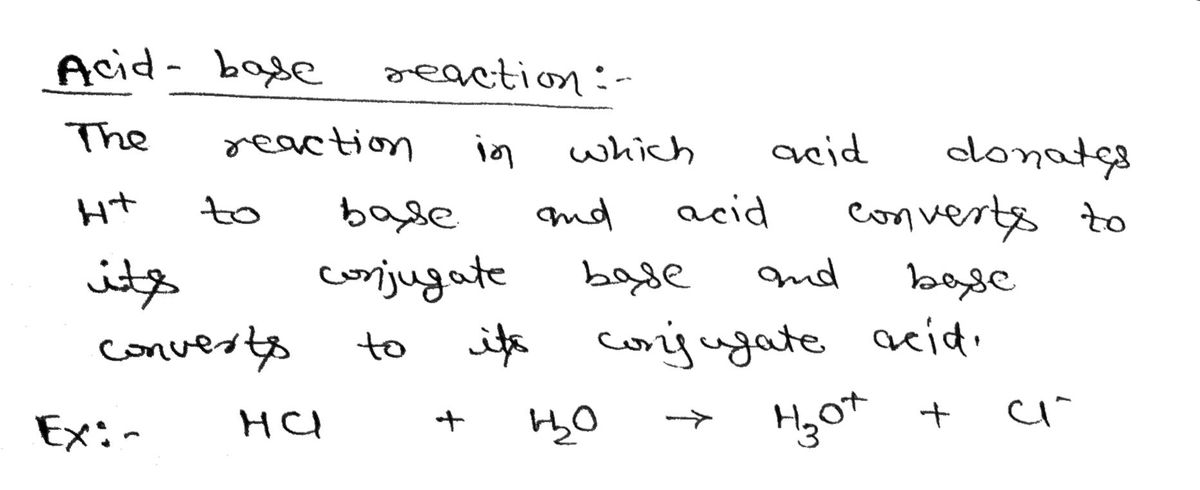 Acid - base reaction :-
The reaction in which acid donates
H⁺ to base and acid converts to
its conjugate base and base
converts to its conjugate acid.
Ex:- HCl + H₂O → H₃O⁺ + Cl⁻